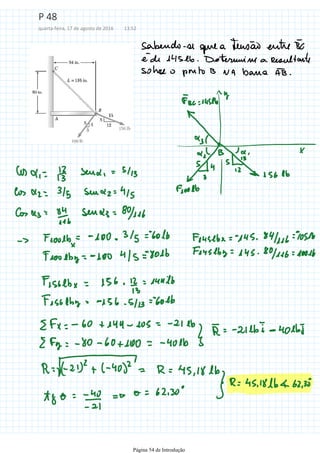 P 48
quarta-feira, 17 de agosto de 2016 13:52
Sabendo-se que a tensão entre BC
é de 145 lb. Determine a resultante
sobre o ponto B na barra AB.
84 in.
C
L = 116 in.
80 in.
A
B
100 lb
156 lb
F_BC = 145 lb
y
x
α3
α2
B
α1
5
4
3
5
13
12
156 lb
F100lb
Cos α1 = 12/13 Sen α1 = 5/13
Cos α2 = 3/5 Sen α2 = 4/5
Cos α3 = 84/116 Sen α3 = 80/116
-> F100lbx = -100 . 3/5 = -60 lb F145lbx = -145 . 84/116 = -105 lb
F100lby = -100 4/5 = -80 lb F145lby = 145 . 80/116 = 100 lb
F156lbx = 156 . 12/13 = 144 lb
F156lby = -156 . 5/13 = -60 lb
ΣFx = -60 + 144 - 105 = -21 lb
ΣFy = -80 - 60 + 100 = -40 lb
R = -21 lb i - 40 lb j
R = √(-21)² + (-40)² = R = 45,18 lb
tg θ = -40/-21 => θ = 62,30°
R = 45,18 lb ∡ 62,30°
Página 54 de Introdução